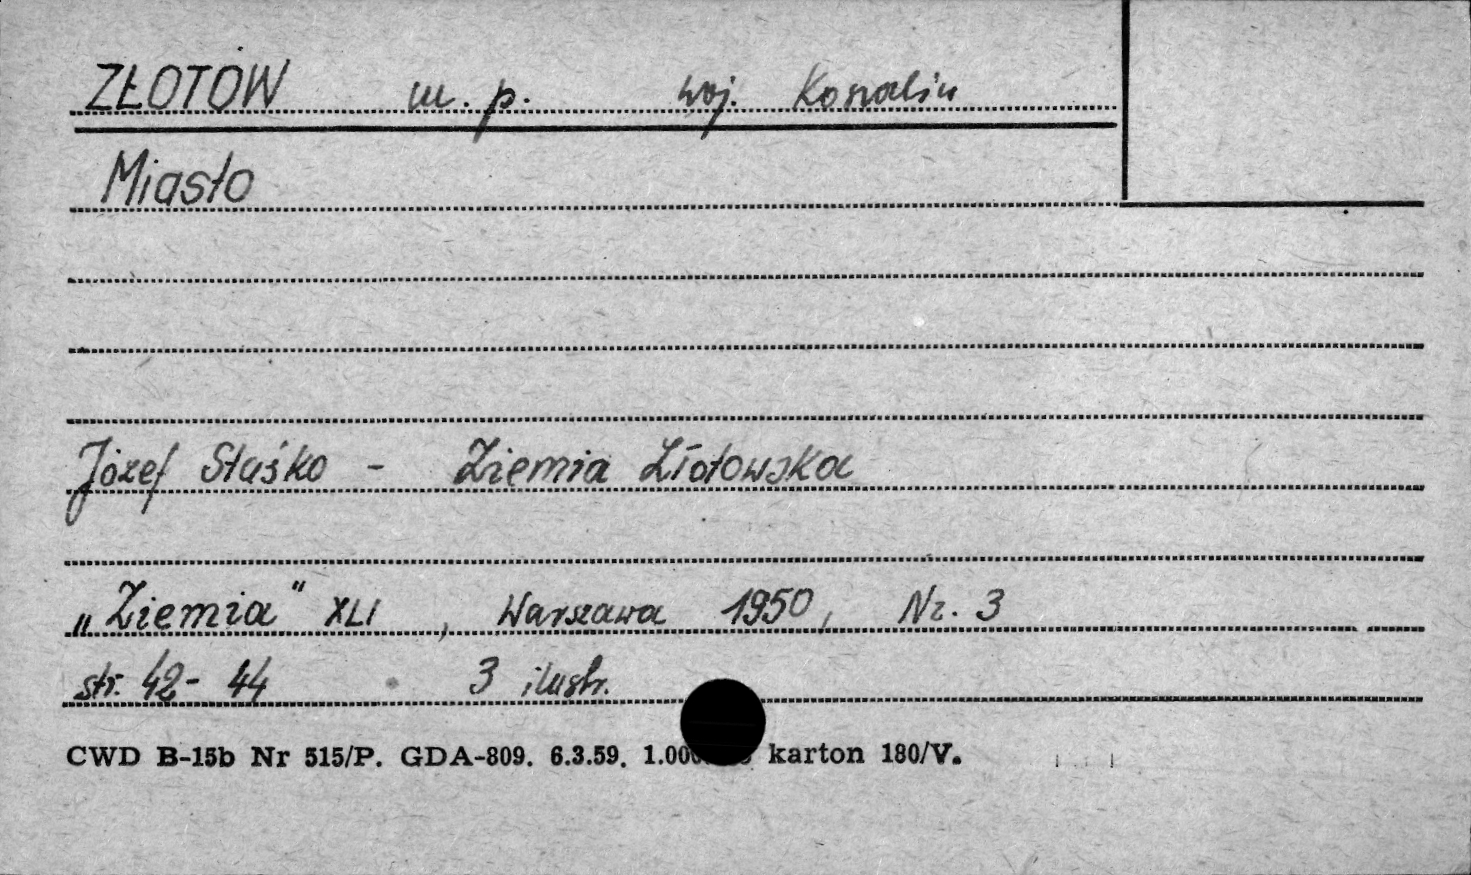 ZŁOTÓW m. p. woj. Koszalin
Miasto
Józef Staśko - Ziemia Złotowska
„Ziemia" XLI, Warszawa 1950, Nr. 3
str. 42-44 3 ilustr.
CWD B-15b Nr 515/P. GDA-809. 6.3.59. karton 180/V.